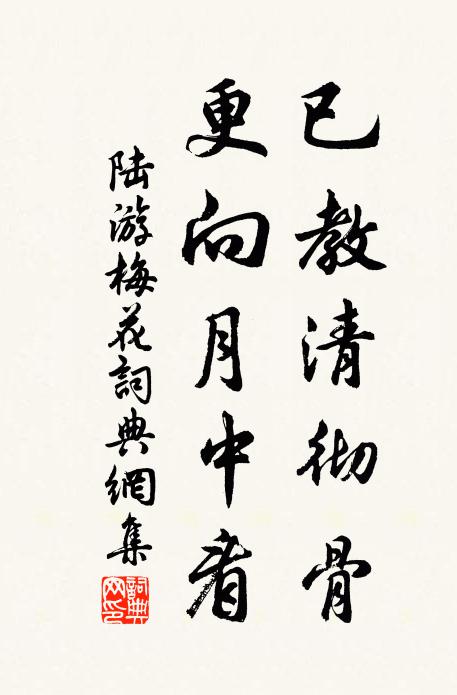 已教清彻骨
更向月中看
陆游梅花詞典網集
詞典网印